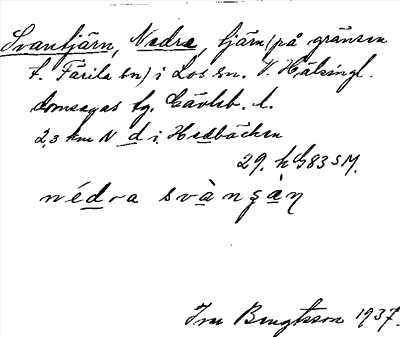 Svantjärn, Nedre, tjärn (på gränsen
t. Färila sn) i Los sn. V. Hälsingl.
domsagas tg. Gävleb. l.
2,3 km N d i Hedbäcken
29. h G83 SM.
nédra svàngàn
Bengtsson 1937.